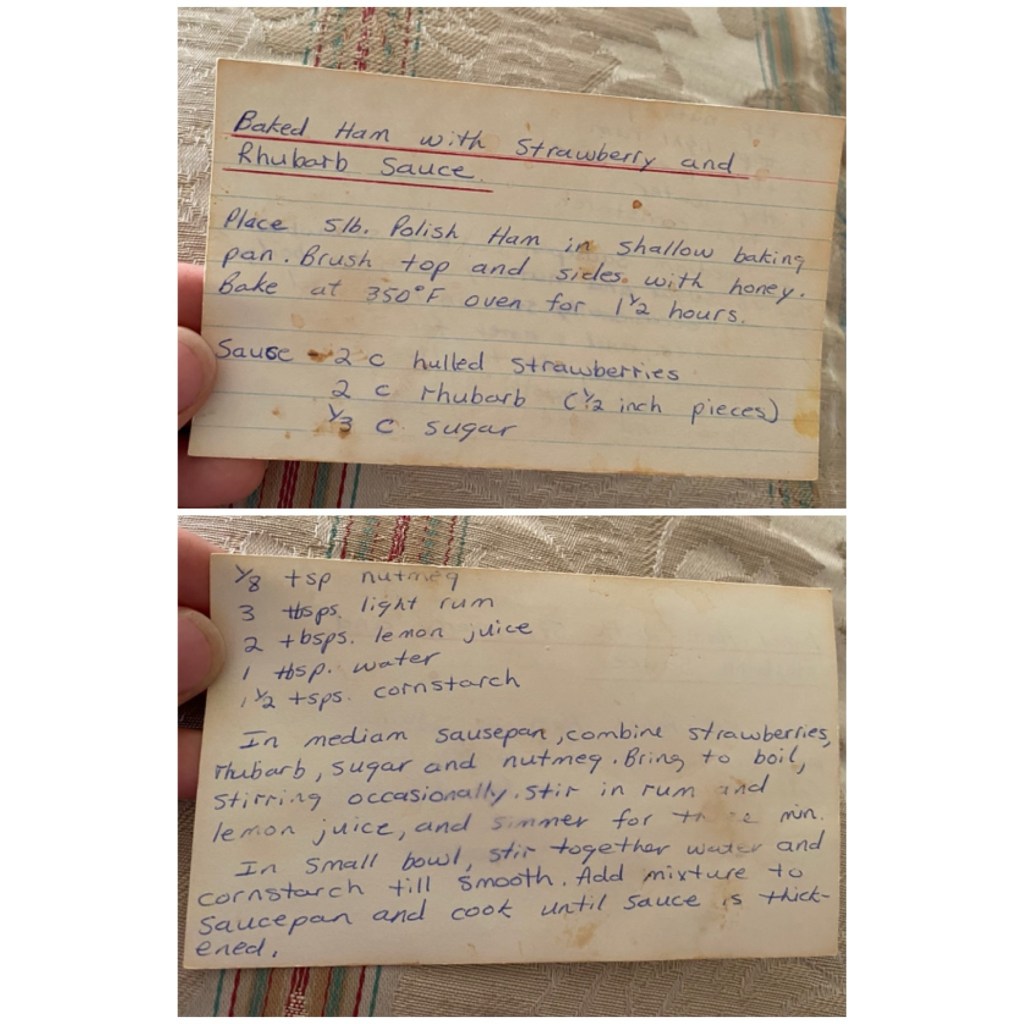 Baked Ham with Strawberry and
Rhubarb Sauce.
Place 5lb. Polish Ham in shallow baking
pan. Brush top and sides with honey.
Bake at 350°F oven for 1 1/2 hours.
Sause - 2 c hulled strawberries
2 c rhubarb (1/2 inch pieces)
1/3 c. sugar
1/8 tsp nutmeg
3 tbsps. light rum
2 tbsps. lemon juice
1 tbsp. water
1 1/2 tsps. cornstarch
In mediam sausepan, combine strawberries,
rhubarb, sugar and nutmeg. Bring to boil,
stirring occasionally. Stir in rum and
lemon juice, and simmer for min.
In small bowl, stir together water and
cornstarch till smooth. Add mixture to
saucepan and cook until sauce is thick-
ened.